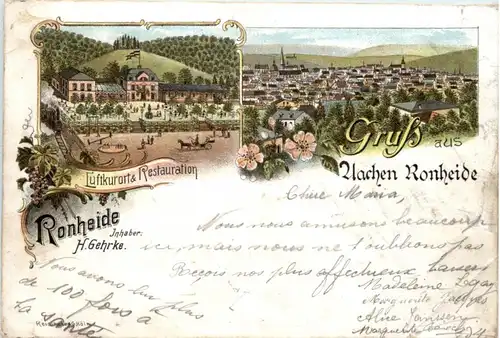 Gruß aus
Aachen Ronheide
Luftkurort & Restauration
Ronheide
Inhaber:
H. Gehrke.
Chère Maria,
Nous nous amusons beaucoup
ici, mais nous ne t'oublions pas
Reçois nos plus affectueux baisers
Madeleine
Marguerite
Aline Janssen
Marguerite
Nous avons bu plus
de 100 fois à
ta santé